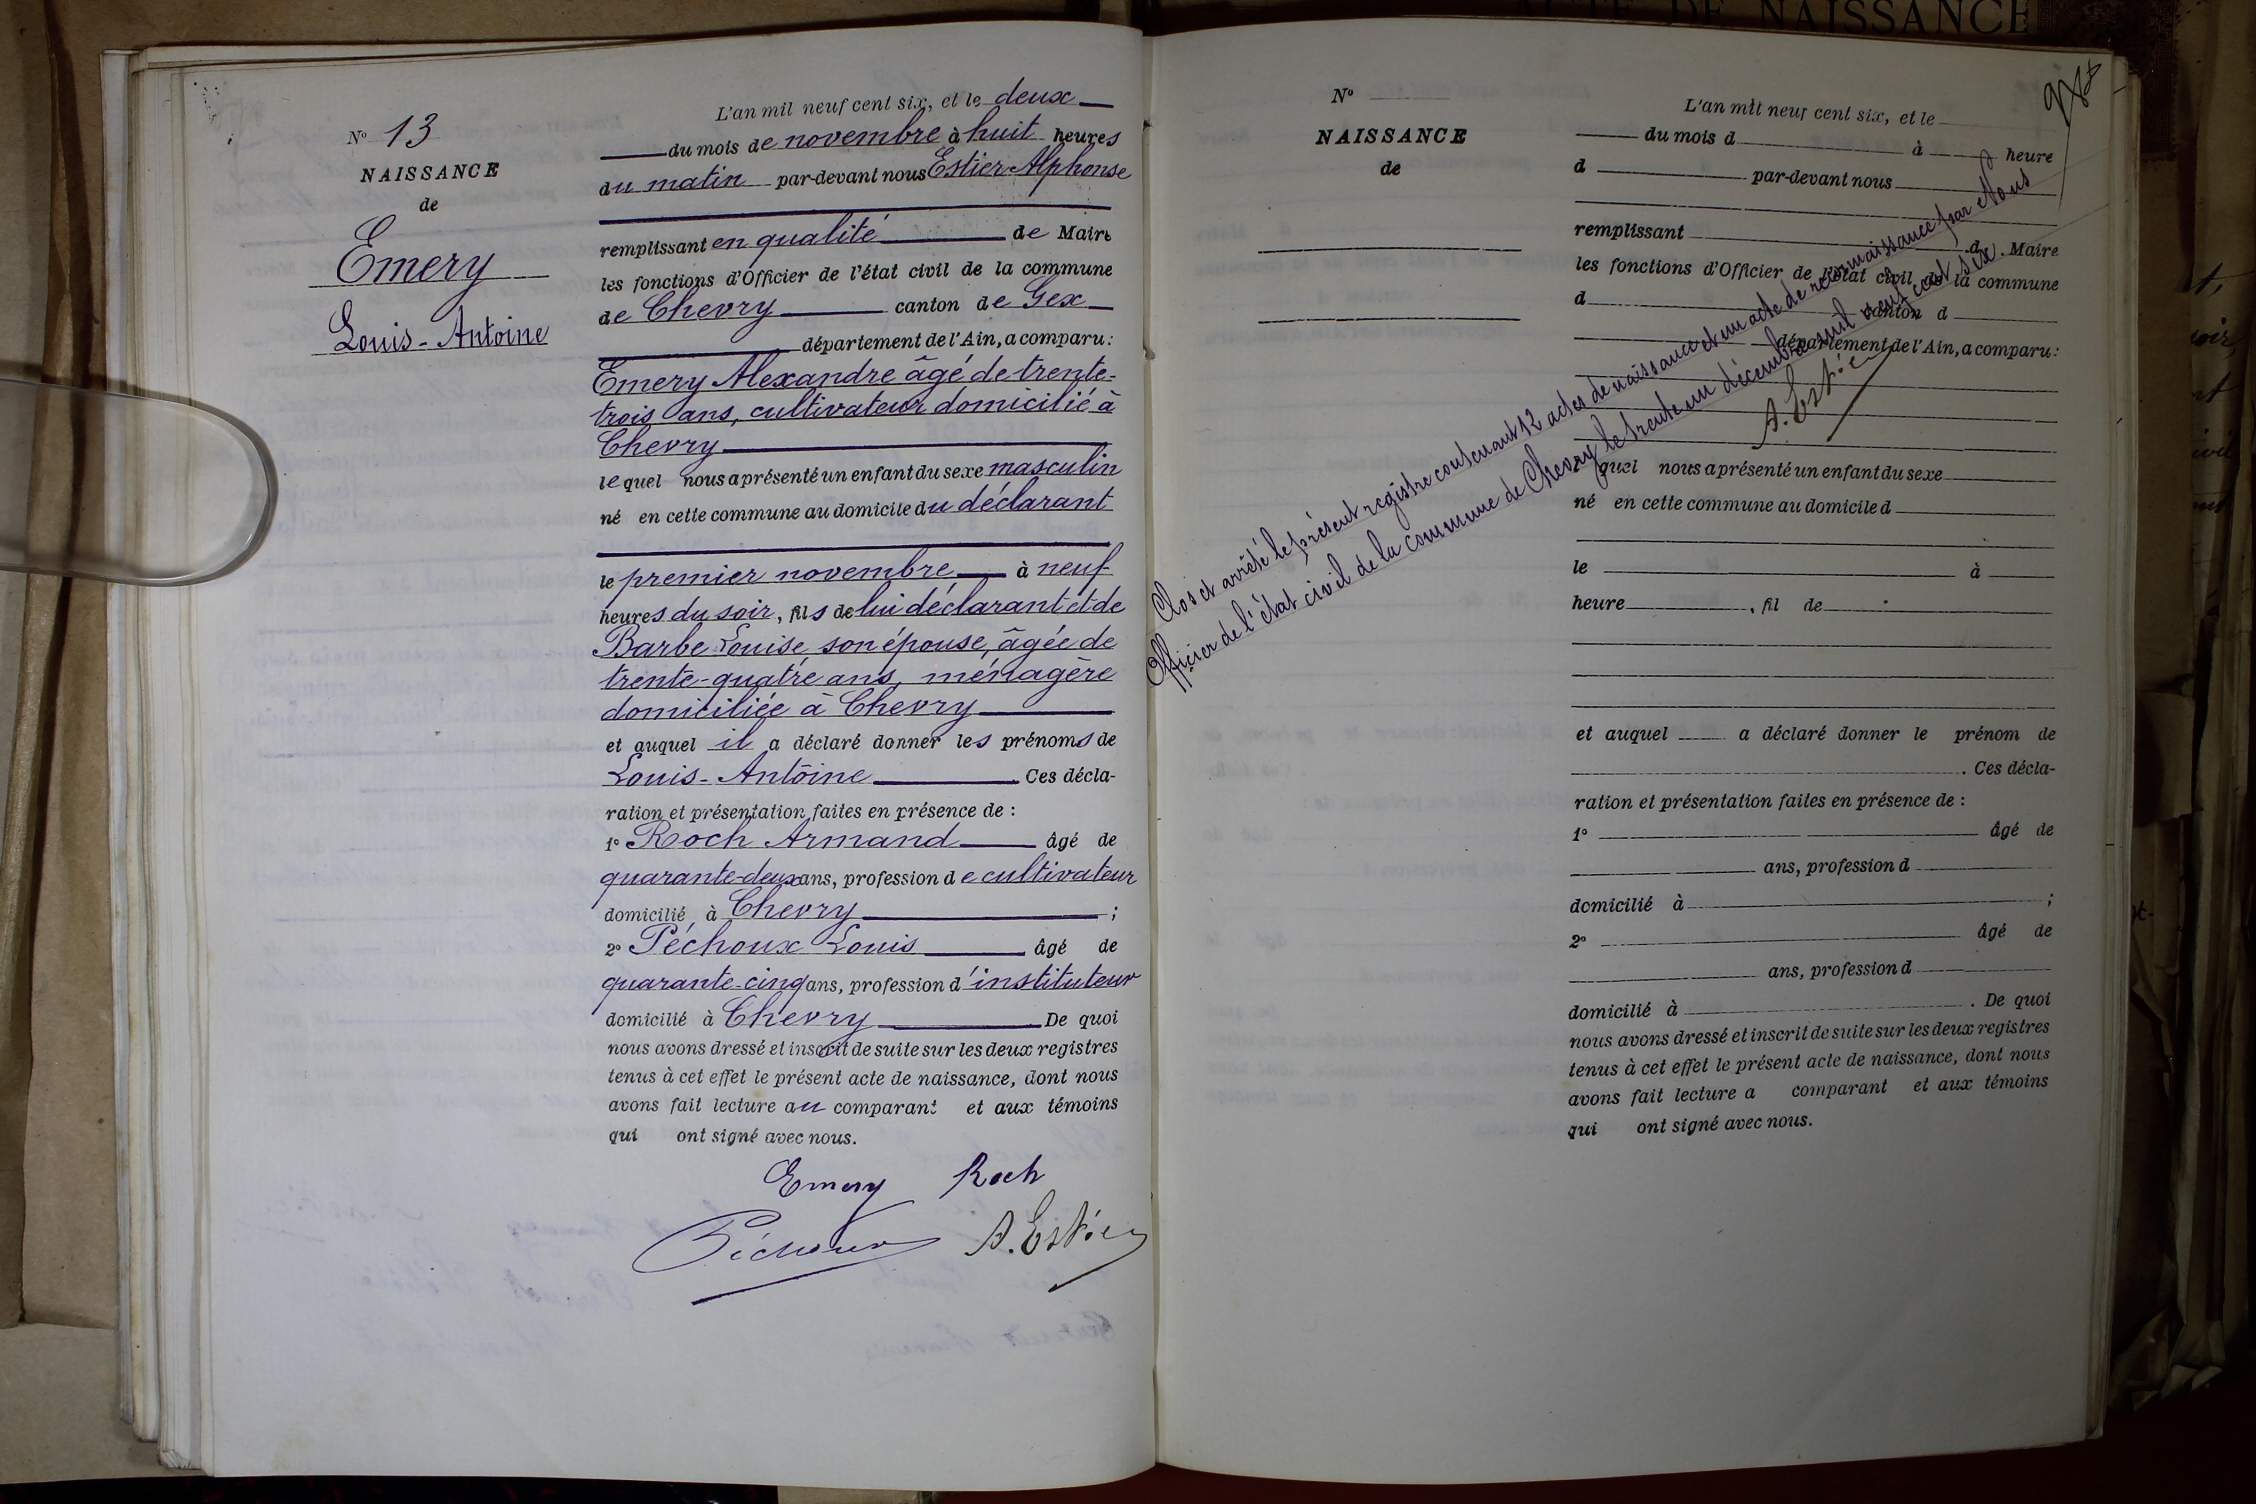 ACTE DE NAISSANCE
N° 13
NAISSANCE
de
Emery
Louis-Antoine
L'an mil neuf cent six, et le deux
du mois de novembre à huit heures
du matin par-devant nous Estier Alphonse
remplissant en qualité de Maire
les fonctions d'Officier de l'état civil de la commune
de Chevry canton de Gex
département de l'Ain, a comparu :
Emery Alexandre âgé de trente-
trois ans, cultivateur domicilié à
Chevry
lequel nous a présenté un enfant du sexe masculin
né en cette commune au domicile du déclarant
le premier novembre à neuf
heures du soir, fils de lui déclarant et de
Barbe Louise son épouse, âgée de
trente-quatre ans, ménagère
domiciliée à Chevry
et auquel il a déclaré donner les prénoms de
Louis-Antoine Ces décla-
ration et présentation faites en présence de :
1° Roch Armand âgé de
quarante-deux ans, profession de cultivateur
domicilié à Chevry ;
2° Péchoux Louis âgé de
quarante-cinq ans, profession d'instituteur
domicilié à Chevry De quoi
nous avons dressé et inscrit de suite sur les deux registres
tenus à cet effet le présent acte de naissance, dont nous
avons fait lecture au comparant et aux témoins
qui ont signé avec nous.
Emery Roch
Péchoux A. Estier
N°
NAISSANCE
de
L'an mil neuf cent six, et le
du mois d à heure
d par-devant nous
remplissant d Maire
les fonctions d'Officier de l'état civil de la commune
d canton d
département de l'Ain, a comparu :
quel nous a présenté un enfant du sexe
né en cette commune au domicile d
le à
heure , fil de
et auquel a déclaré donner le prénom de
. Ces décla-
ration et présentation faites en présence de :
1° âgé de
ans, profession d
domicilié à ;
2° âgé de
ans, profession d
domicilié à . De quoi
nous avons dressé et inscrit de suite sur les deux registres
tenus à cet effet le présent acte de naissance, dont nous
avons fait lecture a comparant et aux témoins
qui ont signé avec nous.
Clos et arrêté le présent registre contenant 12 actes de naissance et un acte de reconnaissance par Nous
Officier de l'état civil de la commune de Chevry le trente un décembre mil neuf cent six.
A. Estier